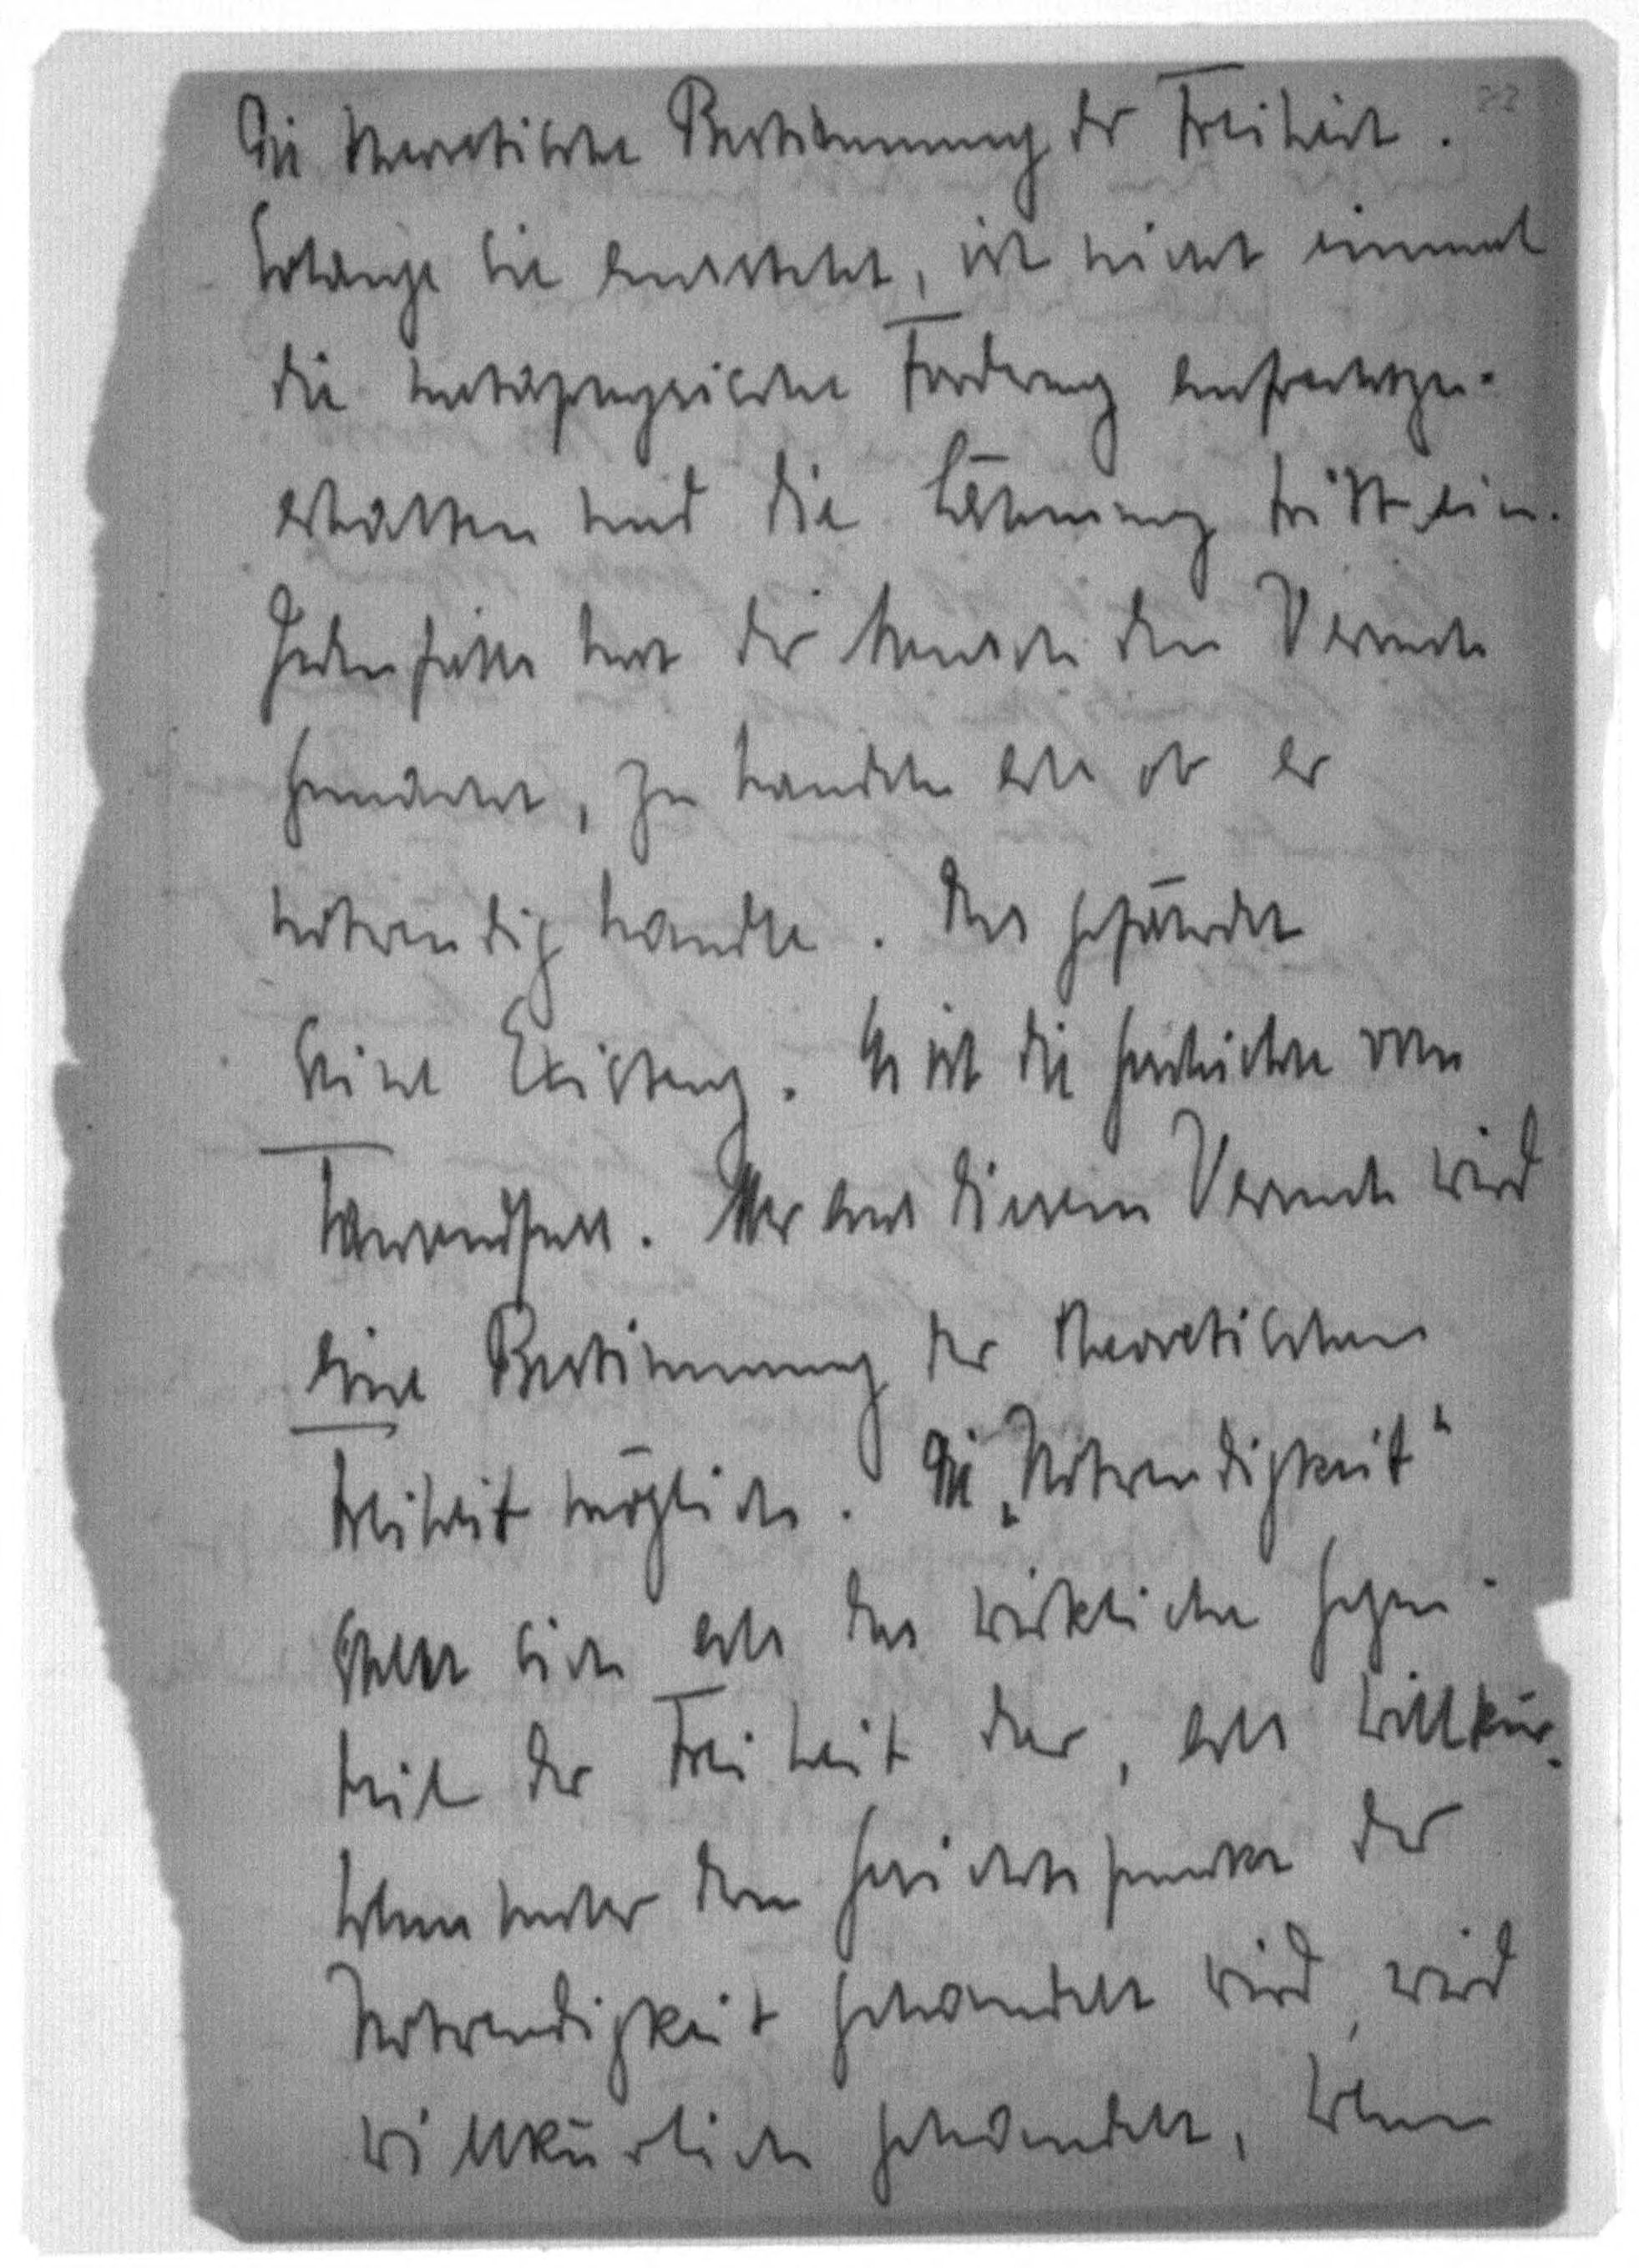 22
Die theoretische Bestimmung der Freiheit.
Solange sie aussteht, ist nicht einmal
die metaphysische Forderung aufrechtzu-
erhalten und die Lähmung tritt ein.
Jedenfalls hat der Mensch den Versuch
gemacht, zu handeln als ob er
notwendig handle. Das gefährdet
seine Existenz. Es ist die Geschichte vom
Tausendfuss. Aber aus diesem Versuch wird
eine Bestimmung der theoretischen
Freiheit möglich. Die „Notwendigkeit"
stellt sich als das wirkliche Gegen-
teil der Freiheit dar, als Willkür.
Wenn unter dem Gesichtspunkt der
Notwendigkeit gehandelt wird, wird
willkürlich gehandelt, wenn